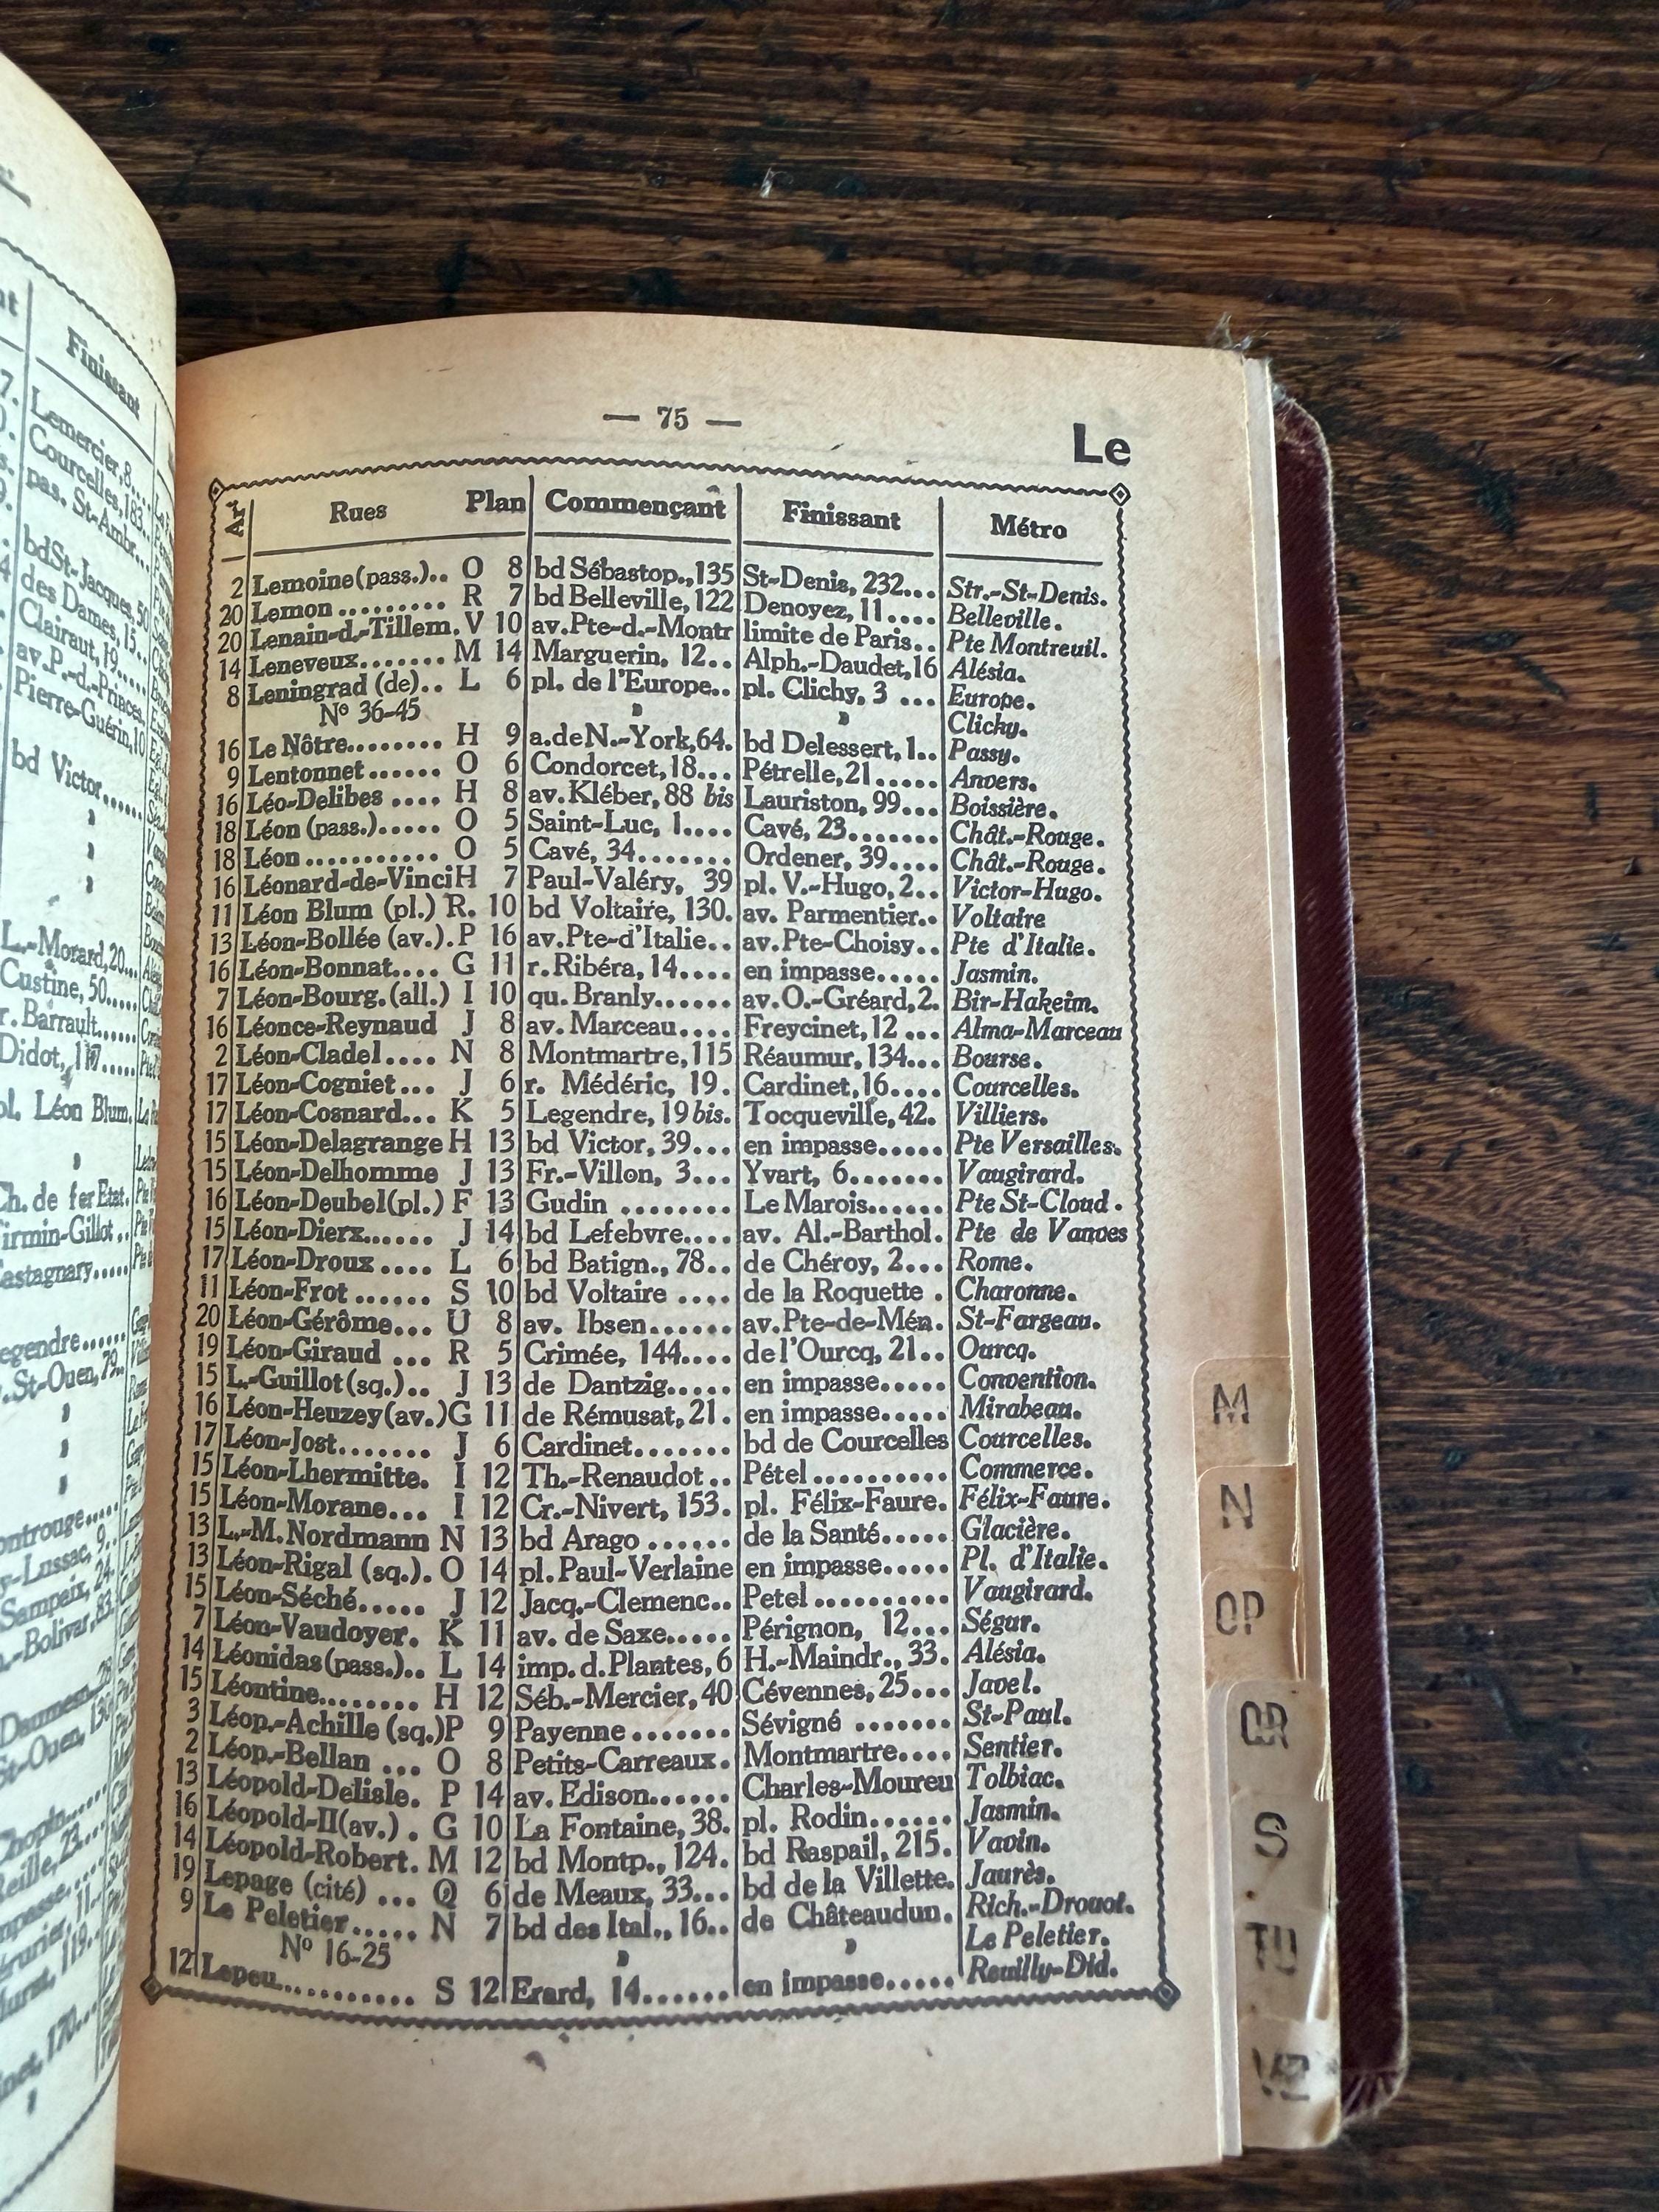 Finissant
Lemercier, 8....
Courcelles, 183..
pas. St-Ambr...
bd St-Jacques, 50
des Dames, 15..
Clairaut, 19....
av. P.-d.-Princes,
Pierre-Guérin, 10
bd Victor......
L.-Morard, 20...
Custine, 50.....
r. Barrault......
Didot, 117.....
pl. Léon Blum.
Ch. de fer Etat.
Firmin-Gillot..
Castagnary.....
Legendre......
St-Ouen, 79..
— 75 —
Le
Arᵗ Rues Plan Commençant Finissant Métro
2 Lemoine (pass.).. O 8 bd Sébastop., 135 St-Denis, 232... Str.-St-Denis.
20 Lemon .......... R 7 bd Belleville, 122 Denoyez, 11.... Belleville.
20 Lenain-d.-Tillem. V 10 av. Pte-d.-Montr limite de Paris.. Pte Montreuil.
14 Leneveux........ M 14 Marguerin, 12.. Alph.-Daudet, 16 Alésia.
8 Leningrad (de).. L 6 pl. de l'Europe.. pl. Clichy, 3 ... Europe.
Nº 36-45 » » Clichy.
16 Le Nôtre........ H 9 a. de N.-York, 64. bd Delessert, 1.. Passy.
9 Lentonnet...... O 6 Condorcet, 18... Pétrelle, 21..... Anvers.
16 Léo-Delibes .... H 8 av. Kléber, 88 bis Lauriston, 99... Boissière.
18 Léon (pass.)..... O 5 Saint-Luc, 1.... Cavé, 23....... Chât.-Rouge.
18 Léon........... O 5 Cavé, 34....... Ordener, 39.... Chât.-Rouge.
16 Léonard-de-Vinci H 7 Paul-Valéry, 39 pl. V.-Hugo, 2.. Victor-Hugo.
11 Léon Blum (pl.) R. 10 bd Voltaire, 130. av. Parmentier.. Voltaire
13 Léon-Bollée (av.). P 16 av. Pte-d'Italie.. av. Pte-Choisy.. Pte d'Italie.
16 Léon-Bonnat.... G 11 r. Ribéra, 14.... en impasse..... Jasmin.
7 Léon-Bourg. (all.) I 10 qu. Branly...... av. O.-Gréard, 2. Bir-Hakeim.
16 Léonce-Reynaud J 8 av. Marceau.... Freycinet, 12 ... Alma-Marceau
2 Léon-Cladel.... N 8 Montmartre, 115 Réaumur, 134... Bourse.
17 Léon-Cogniet... J 6 r. Médéric, 19. Cardinet, 16.... Courcelles.
17 Léon-Cosnard... K 5 Legendre, 19 bis. Tocqueville, 42. Villiers.
15 Léon-Delagrange H 13 bd Victor, 39... en impasse..... Pte Versailles.
15 Léon-Delhomme J 13 Fr.-Villon, 3... Yvart, 6....... Vaugirard.
16 Léon-Deubel (pl.) F 13 Gudin ........ Le Marois...... Pte St-Cloud.
15 Léon-Dierx...... J 14 bd Lefebvre.... av. Al.-Barthol. Pte de Vanves
17 Léon-Droux .... L 6 bd Batign., 78.. de Chéroy, 2... Rome.
11 Léon-Frot ...... S 10 bd Voltaire .... de la Roquette . Charonne.
20 Léon-Gérôme... U 8 av. Ibsen...... av. Pte-de-Mén. St-Fargeau.
19 Léon-Giraud ... R 5 Crimée, 144.... de l'Ourcq, 21.. Ourcq.
15 L.-Guillot (sq.).. J 13 de Dantzig..... en impasse..... Convention.
16 Léon-Heuzey (av.) G 11 de Rémusat, 21. en impasse..... Mirabeau.
17 Léon-Jost....... J 6 Cardinet....... bd de Courcelles Courcelles.
15 Léon-Lhermitte. I 12 Th.-Renaudot.. Pétel .......... Commerce.
15 Léon-Morane... I 12 Cr.-Nivert, 153. pl. Félix-Faure. Félix-Faure.
13 L.-M. Nordmann N 13 bd Arago ...... de la Santé..... Glacière.
13 Léon-Rigal (sq.). O 14 pl. Paul-Verlaine en impasse..... Pl. d'Italie.
15 Léon-Séché..... J 12 Jacq.-Clemenc.. Petel .......... Vaugirard.
7 Léon-Vaudoyer. K 11 av. de Saxe..... Pérignon, 12... Ségur.
14 Léonidas (pass.).. L 14 imp. d. Plantes, 6 H.-Maindr., 33. Alésia.
15 Léontine........ H 12 Séb.-Mercier, 40 Cévennes, 25... Javel.
3 Léop.-Achille (sq.) P 9 Payenne ....... Sévigné ....... St-Paul.
2 Léop.-Bellan ... O 8 Petits-Carreaux. Montmartre.... Sentier.
13 Léopold-Delisle. P 14 av. Edison...... Charles-Moureu Tolbiac.
16 Léopold-II (av.) . G 10 La Fontaine, 38. pl. Rodin...... Jasmin.
14 Léopold-Robert. M 12 bd Montp., 124. bd Raspail, 215. Vavin.
19 Lepage (cité) ... Q 6 de Meaux, 33... bd de la Villette. Jaurès.
9 Le Peletier...... N 7 bd des Ital., 16.. de Châteaudun. Rich.-Drouot.
Nº 16-25 » » Le Peletier.
12 Lepeu.......... S 12 Erard, 14....... en impasse..... Reuilly-Did.
M
N
OP
QR
S
TU
VZ